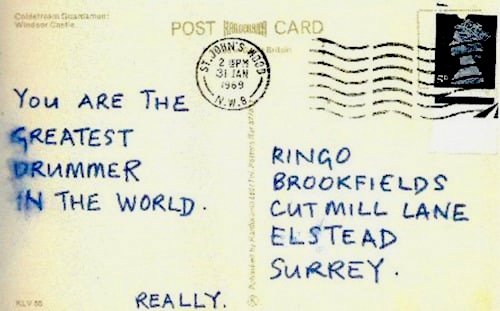 Coldstream Guardsmen:
Windsor Castle.
POST KARDORAMA CARD
Britain
ST. JOHN'S WOOD
2 15PM
31 JAN
1969
N.W.8.
YOU ARE THE
GREATEST
DRUMMER
IN THE WORLD.
REALLY.
RINGO
BROOKFIELDS
CUT MILL LANE
ELSTEAD
SURREY.
KLV 55